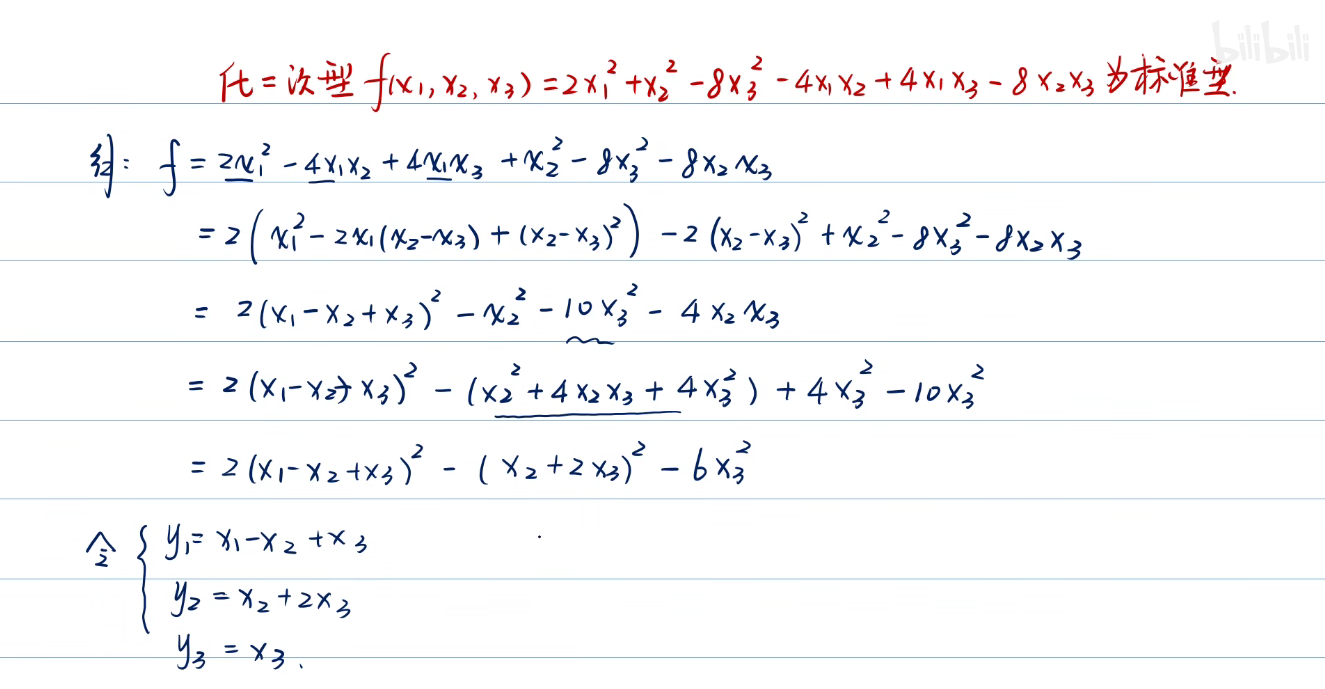 bilibili
化二次型 f(x₁, x₂, x₃) = 2x₁² + x₂² - 8x₃² - 4x₁x₂ + 4x₁x₃ - 8x₂x₃ 为标准型.
解: f = 2x₁² - 4x₁x₂ + 4x₁x₃ + x₂² - 8x₃² - 8x₂x₃
= 2(x₁² - 2x₁(x₂-x₃) + (x₂-x₃)²) - 2(x₂-x₃)² + x₂² - 8x₃² - 8x₂x₃
= 2(x₁-x₂+x₃)² - x₂² - 10x₃² - 4x₂x₃
= 2(x₁-x₂+x₃)² - (x₂² + 4x₂x₃ + 4x₃²) + 4x₃² - 10x₃²
= 2(x₁-x₂+x₃)² - (x₂+2x₃)² - 6x₃²
令 { y₁ = x₁-x₂+x₃
y₂ = x₂+2x₃
y₃ = x₃.